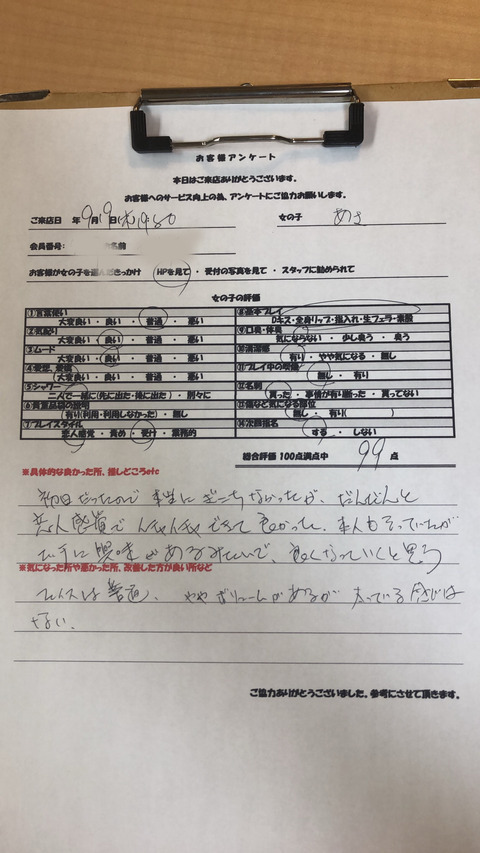 お客様アンケート
本日はご来店ありがとうございます。
お客様へのサービス向上の為、アンケートにご協力お願いします。
ご来店日 年 9月19日(木)19:50 女の子 めさ
会員番号: 名前
お客様が女の子を選んだきっかけ HPを見て ・ 受付の写真を見て ・ スタッフに勧められて
女の子の評価
①言葉使い
大変良い ・ 良い ・ 普通 ・ 悪い
②気配り
大変良い ・ 良い ・ 普通 ・ 悪い
③ムード
大変良い ・ 良い ・ 普通 ・ 悪い
④愛想、愛嬌
大変良い ・ 良い ・ 普通 ・ 悪い
⑤シャワー
二人で一緒に(先に出た・後に出た) ・ 別々に
⑥貴重品袋の説明
有り(利用・利用しなかった) ・ 無し
⑦プレイスタイル
恋人感覚 ・ 責め ・ 受け ・ 業務的
⑧基本プレイ
Dキス・全身リップ・指入れ・生フェラ・素股
⑨口臭・体臭
気にならない ・ 少し臭う ・ 臭う
⑩清潔感
有り ・ やや気になる ・ 無し
⑪プレイ中の
無し ・ 有り
⑫名刺
貰った ・ 事情が有り断った ・ 貰ってない
⑬傷など気になる部位
無し ・ 有り( )
⑭次回指名
する ・ しない
総合評価 100点満点中 99 点
※具体的な良かった所、推しどころetc
初日だったので本当にぎこちなかったが、だんだんと
恋人感覚でイチャイチャできて良かった。本人も言っていたが
H事に興味があるみたいで、良くなっていくと思う
※気になった所や悪かった所、改善した方が良い所など
フェイスは普通、ややボリュームがあるが太っている感じは
ない。
ご協力ありがとうございました。参考にさせて頂きます。